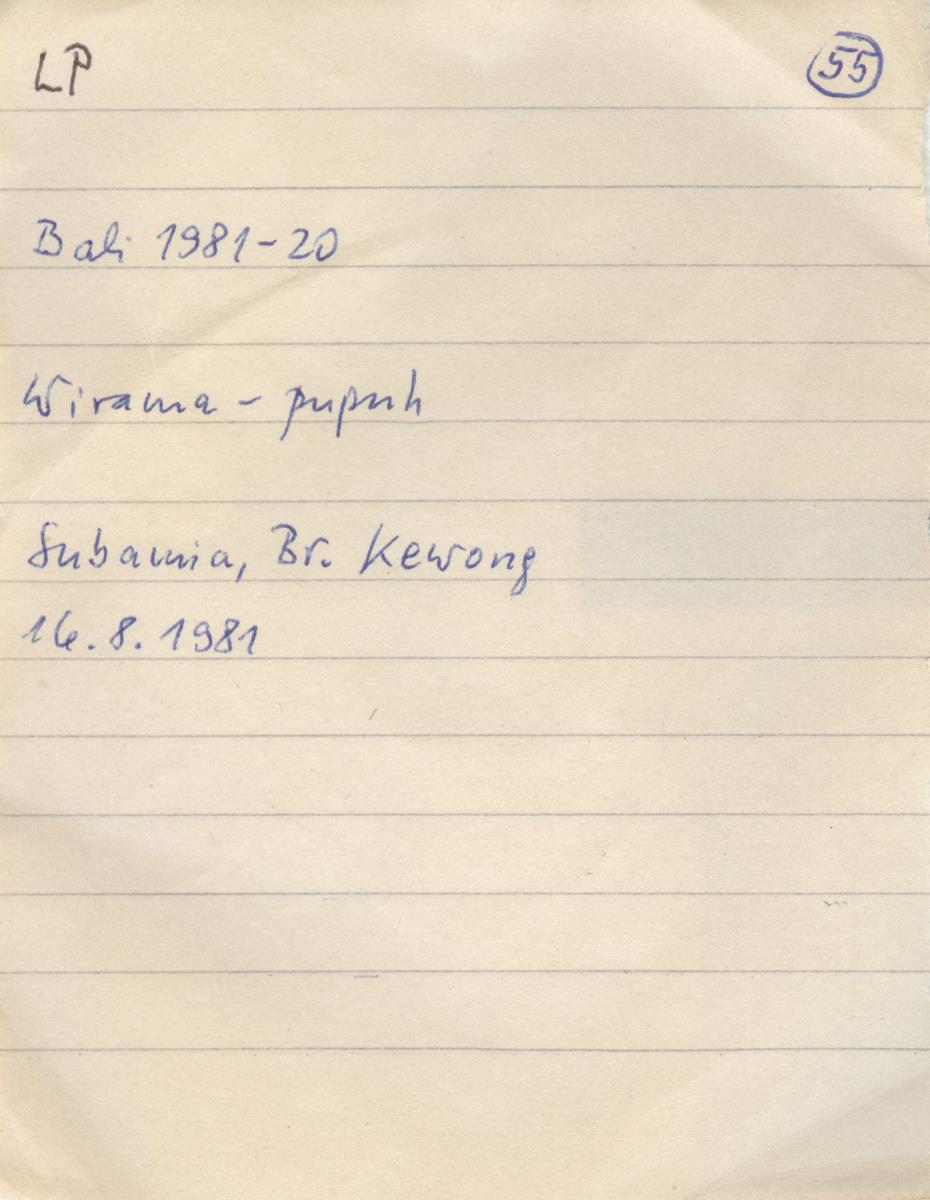 LP
55
Bali 1981-20
Wirama - pupuh
Subamia, Br. Kewong
16.8.1981